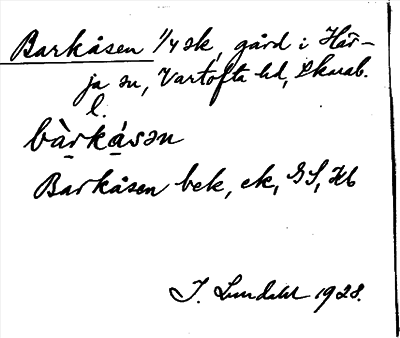 Barkåsen 1/4 sk, gård i Här-
ja sn, Vartofta hd, Skarab.
l.
bàrkåsən
Barkåsen bek, ek, GS, Hb
J. Lundahl 1928.